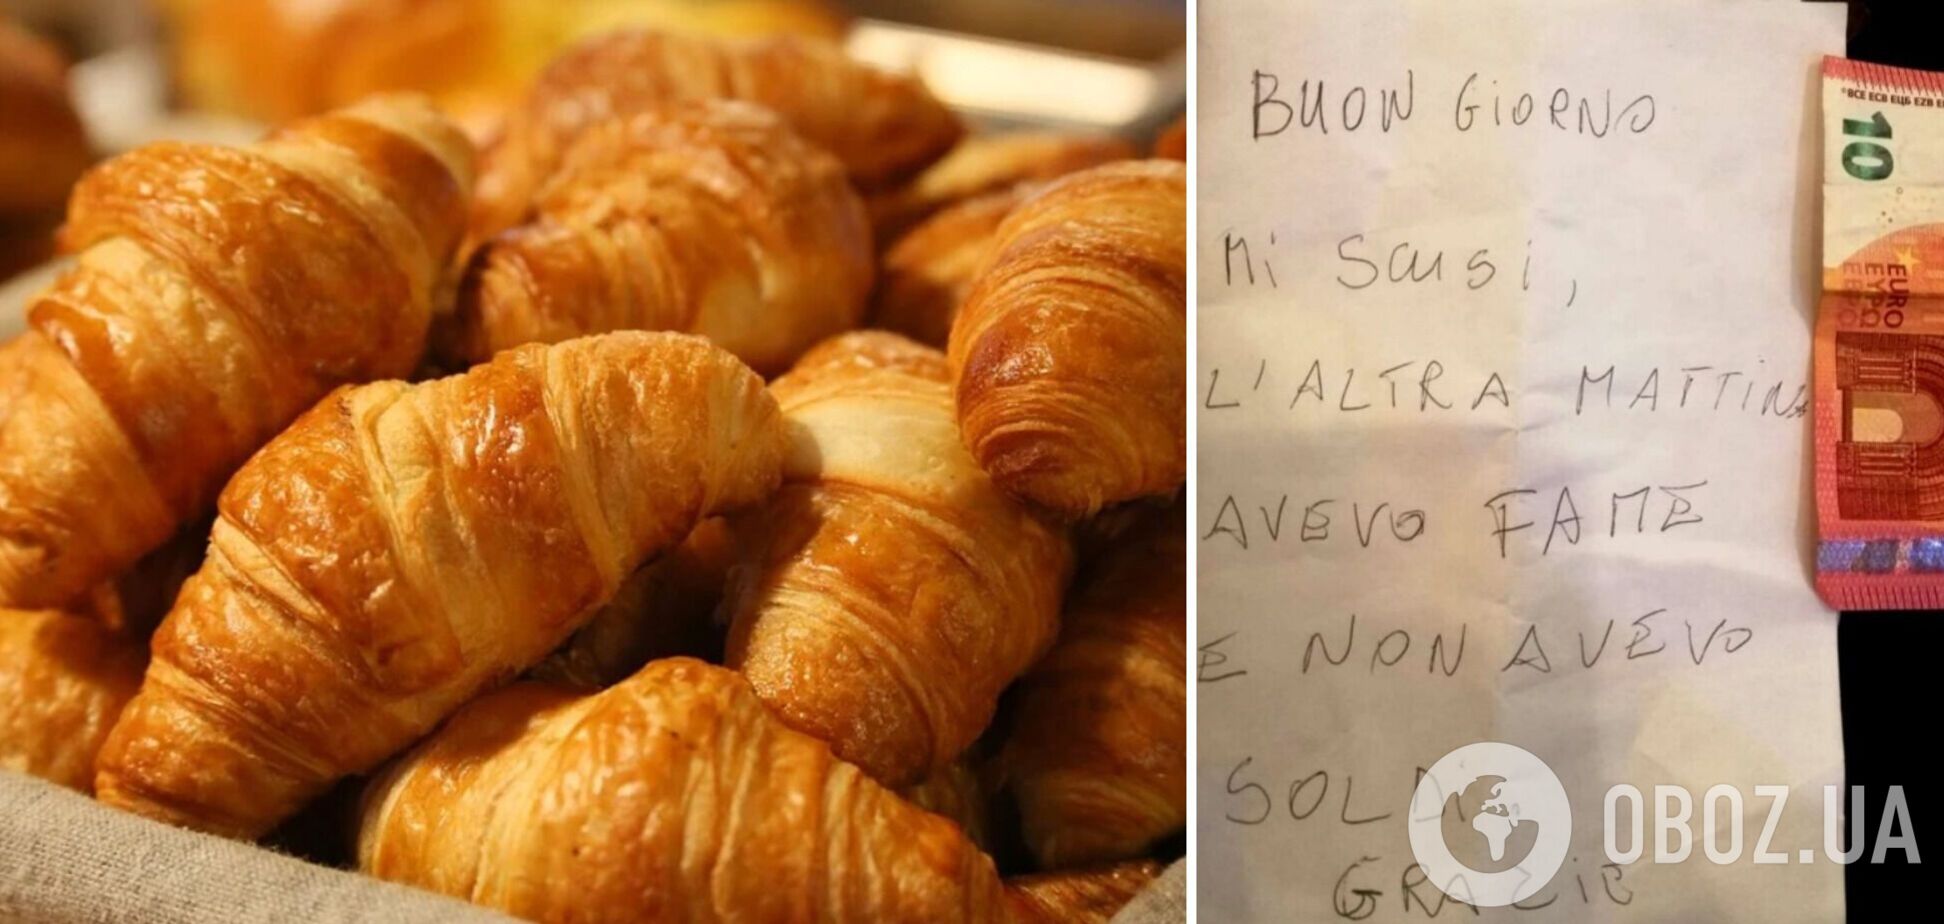 BUON GIORNO
MI SCUSI,
L'ALTRA MATTINA
AVEVO FAME
E NON AVEVO
SOLDI
GRAZIE
BCE ECB ЕЦБ EZB
10
EURO
ΕΥΡΩ
ЕВРО
OBOZ.UA